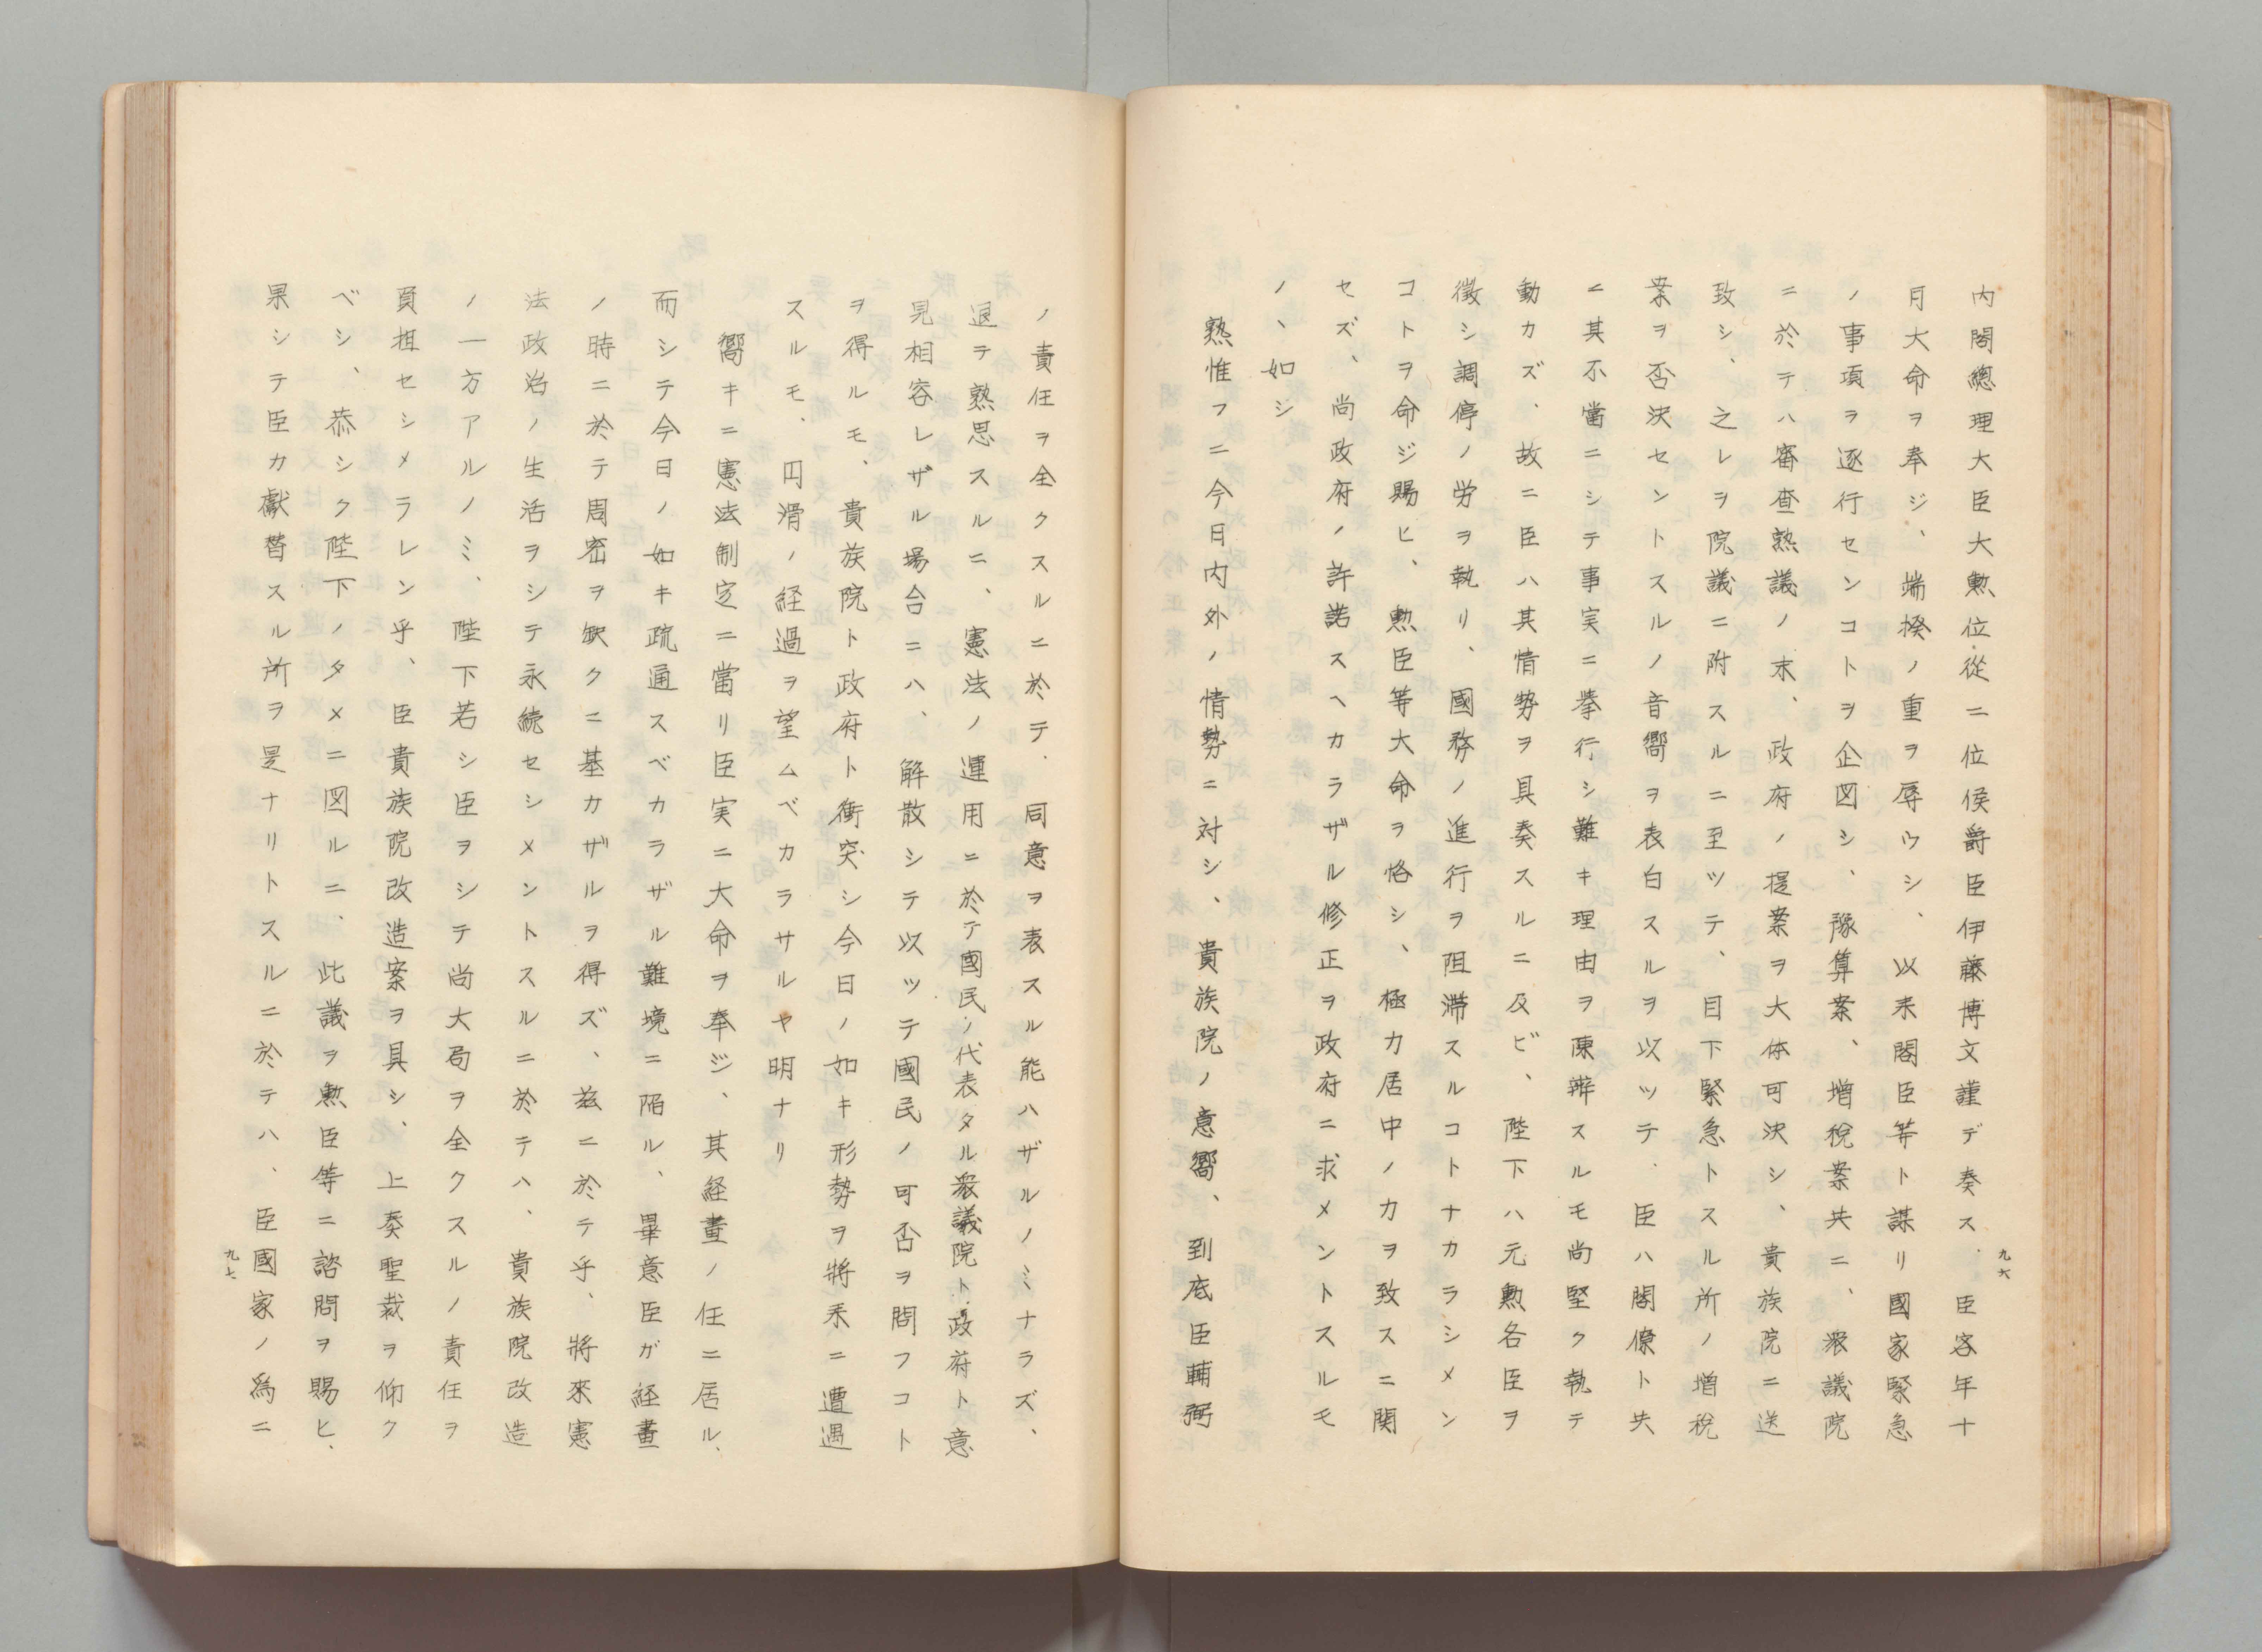 内閣總理大臣大勲位從二位侯爵臣伊藤博文謹デ奏ス．臣客年十
月大命ヲ奉ジ、端揆ノ重ヲ辱ウシ、以来閣臣等ト謀リ國家緊急
ノ事項ヲ逐行センコトヲ企図シ、豫算案、増税案共ニ、衆議院
ニ於テハ審査熟議ノ末、政府ノ提案ヲ大体可決シ、貴族院ニ送
致シ、之レヲ院議ニ附スルニ至ツテ、目下緊急トスル所ノ増税
案ヲ否決セントスルノ音嚮ヲ表白スルヲ以ツテ．臣ハ閣僚ト共
ニ其不當ニシテ事実ニ挙行シ難キ理由ヲ陳辨スルモ尚堅ク執テ
動カズ．故ニ臣ハ其情势ヲ具奏スルニ及ビ、陛下ハ元勲各臣ヲ
徴シ調停ノ労ヲ執リ、國務ノ進行ヲ阻滞スルコトナカラシメン
コトヲ命ジ賜ヒ、勲臣等大命ヲ恪シ、極力居中ノカヲ致スニ関
セズ、尚政府ノ許諾スヘカラザル修正ヲ政府ニ求メントスルモ
ノ、如シ
熟惟フニ今日内外ノ情勢ニ対シ、貴族院ノ意嚮、到底臣輔弼
九六
ノ責任ヲ全クスルニ於テ．同意ヲ表スル能ハザルノミナラズ、
退テ熟思スルニ、憲法ノ運用ニ於テ國民ノ代表タル衆議院ト政府ト意
見相容レザル場合ニハ、解散シテ以ツテ國民ノ可否ヲ問フコト
ヲ得ルモ、貴族院ト政府ト衝突シ今日ノ如キ形勢ヲ將来ニ遭遇
スルモ、円滑ノ経過ヲ望ムベカラサルヤ明ナリ
嚮キニ憲法制定ニ當リ臣実ニ大命ヲ奉ジ、其経畫ノ任ニ居ル、
而シテ今日ノ如キ疏通スベカラザル難境ニ陌ル、畢意臣ガ経畫
ノ時ニ於テ周密ヲ缺クニ基カザルヲ得ズ、茲ニ於テ乎、將來憲
法政治ノ生活ヲシテ永続セシメントスルニ於テハ、貴族院改造
ノ一方アルノミ、陛下若シ臣ヲシテ尚大局ヲ全クスルノ責任ヲ
負担セシメラレン乎、臣貴族院改造案ヲ具シ、上奏聖裁ヲ仰ク
ベシ、恭シク陛下ノタメニ図ルニ、此議ヲ勲臣等ニ諮問ヲ賜ヒ、
果シテ臣カ獻替スル所ヲ是ナリトスルニ於テハ、臣國家ノ為ニ
九七